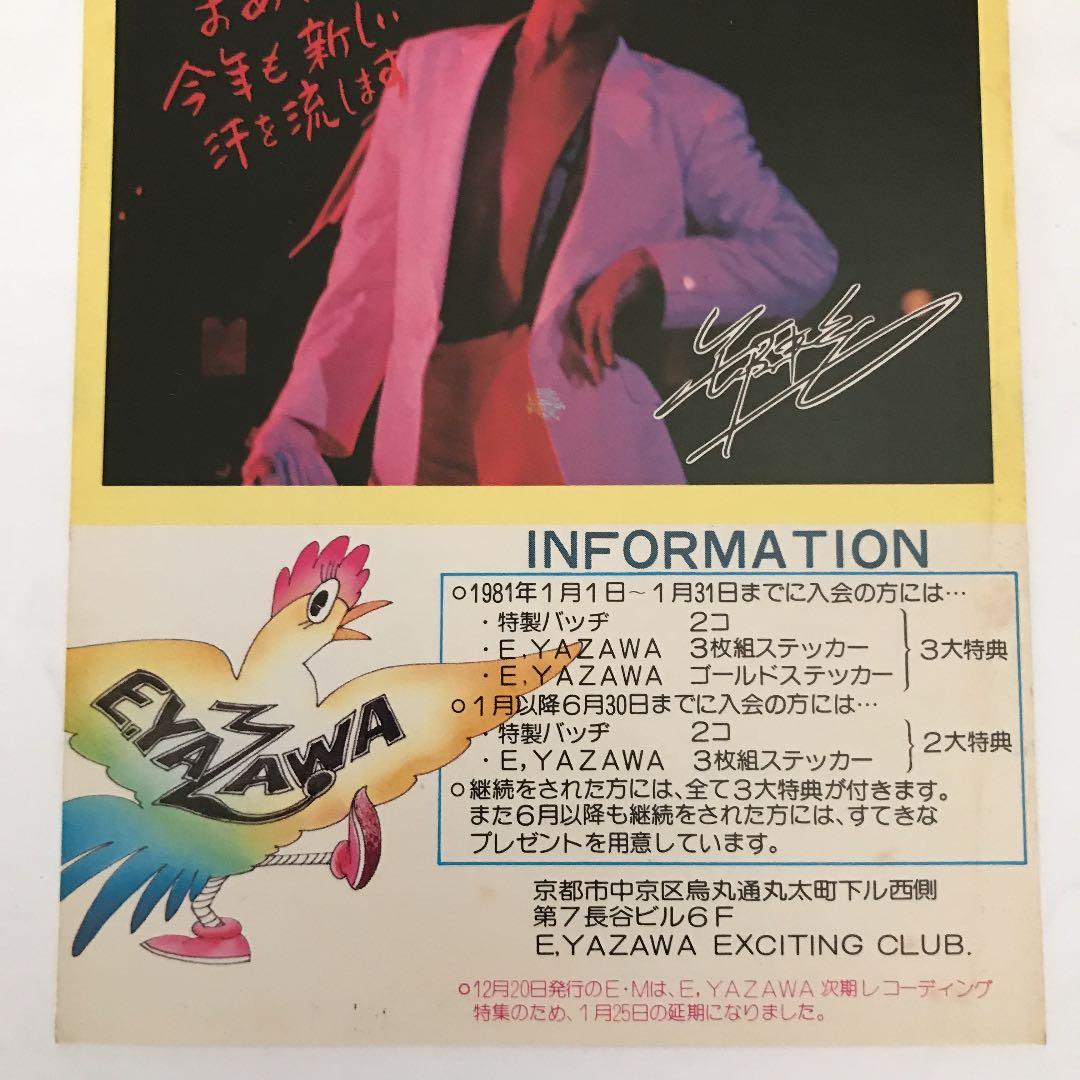 今年も新しい
汗を流します
INFORMATION
○1981年1月1日～1月31日までに入会の方には…
・特製バッヂ 2コ
・E,YAZAWA 3枚組ステッカー
・E,YAZAWA ゴールドステッカー
3大特典
○1月以降6月30日までに入会の方には…
・特製バッヂ 2コ
・E,YAZAWA 3枚組ステッカー
2大特典
○継続をされた方には、全て3大特典が付きます。
また6月以降も継続をされた方には、すてきな
プレゼントを用意しています。
E.YAZAWA
京都市中京区烏丸通丸太町下ル西側
第7長谷ビル6F
E,YAZAWA EXCITING CLUB.
○12月20日発行のE・Mは、E,YAZAWA次期レコーディング
特集のため、1月25日の延期になりました。